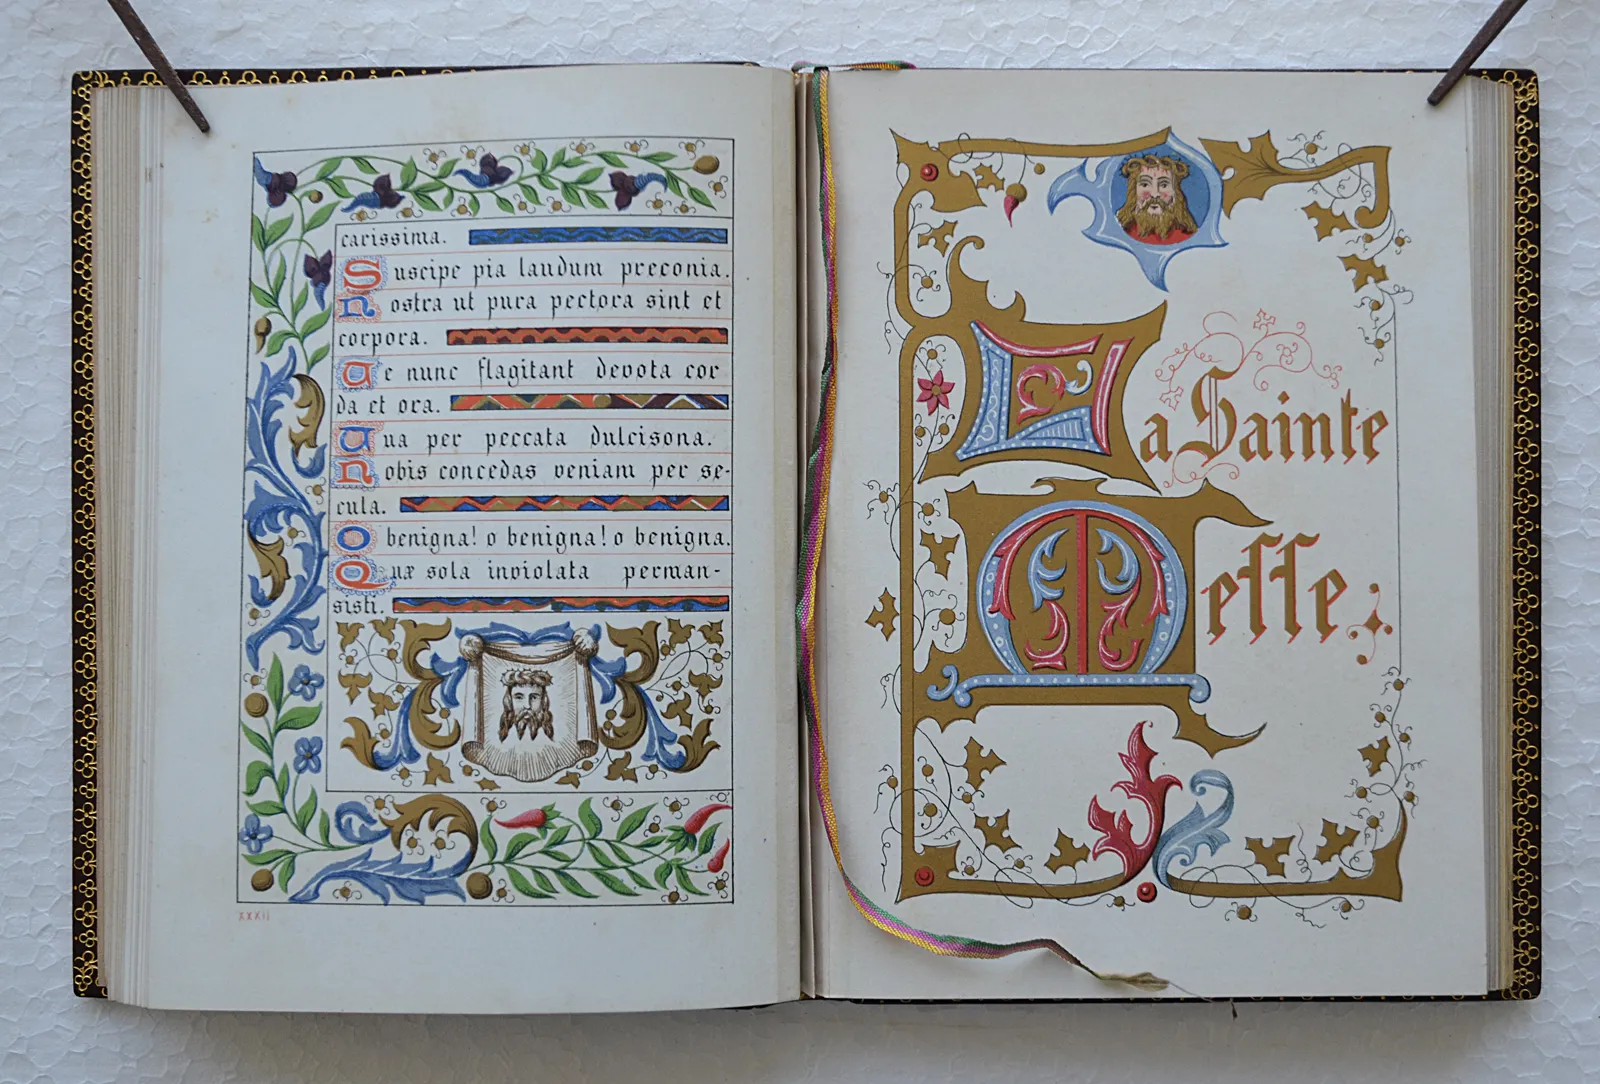 carissima.
Suscipe pia laudum preconia.
Nostra ut pura pectora sint et
corpora.
Te nunc flagitant devota cor
da et ora.
Tua per peccata dulcisona.
Nobis concedas veniam per se-
cula.
O benigna! o benigna! o benigna.
Quæ sola inviolata perman-
sisti.
XXXII
La Sainte
Meſſe